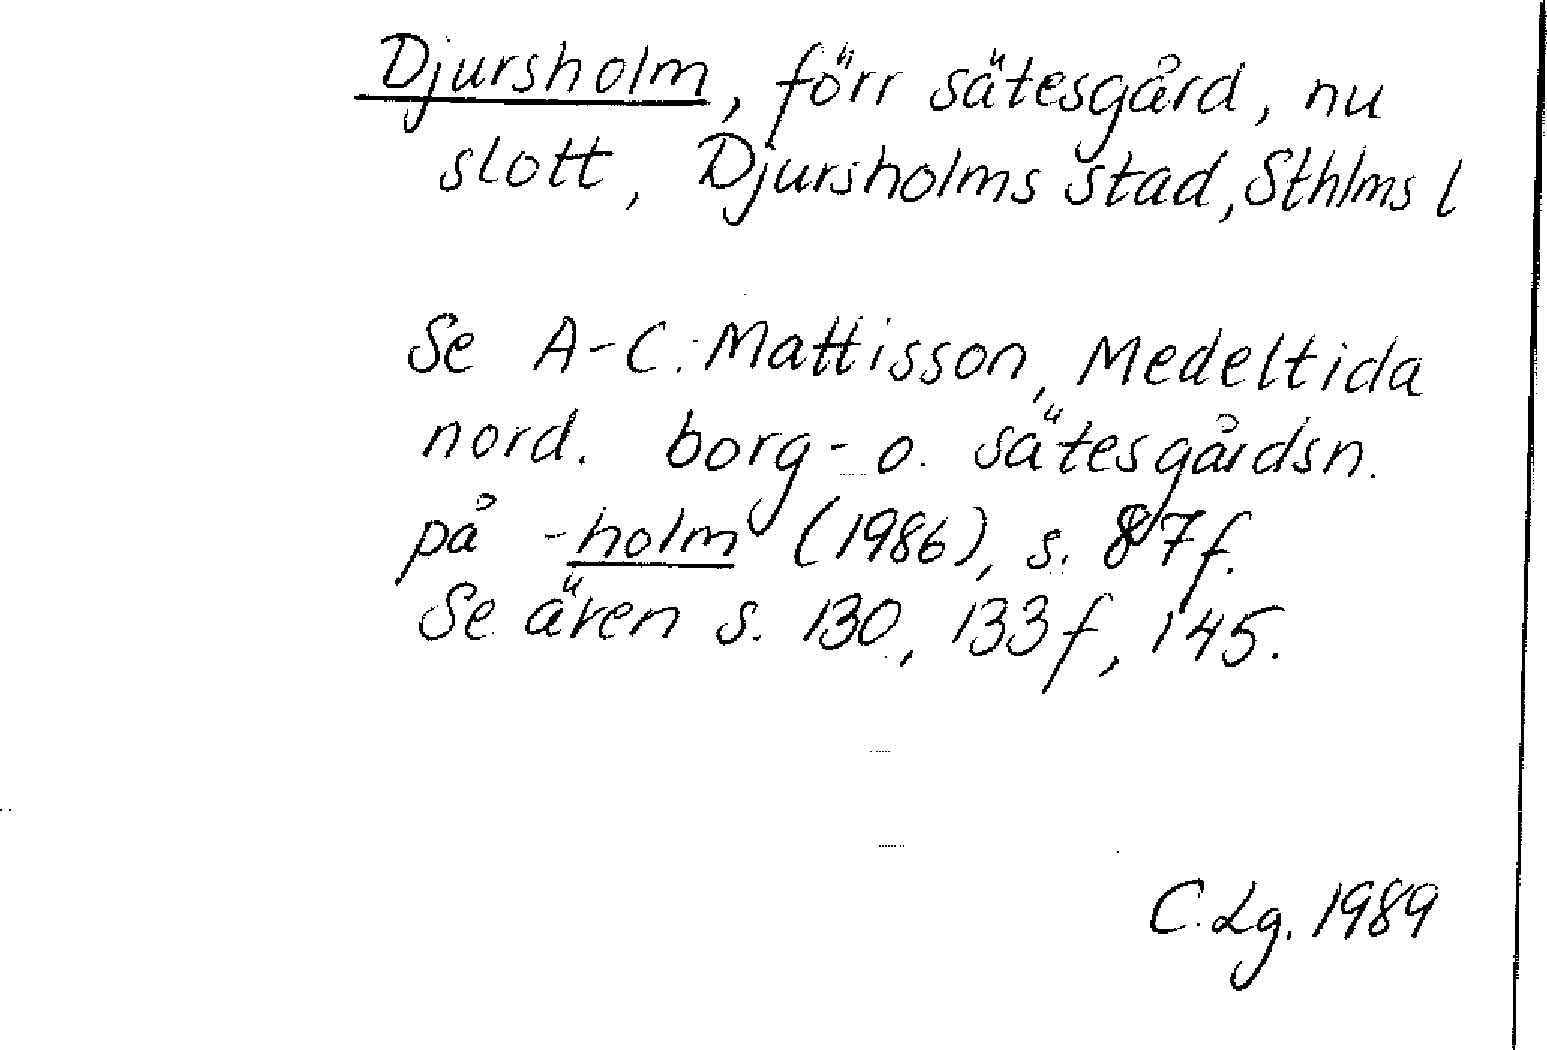 Djursholm, förr sätesgård, nu
slott, Djursholms stad, Sthlms l
Se A-C. Mattisson, Medeltida
nord. borg- o. sätesgårdsn.
på -holm (1986), s. 87f.
Se även s. 130, 133f, 145.
C. Lg. 1989